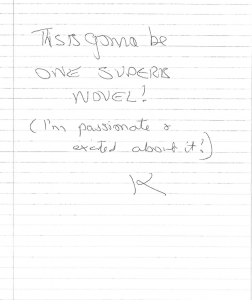 This is gonna be
ONE SUPERB
NOVEL!
(I'm passionate &
excited about it!)
K